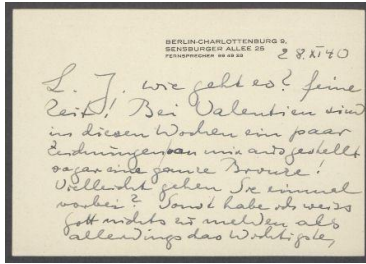 BERLIN-CHARLOTTENBURG 9,
SENSBURGER ALLEE 26
FERNSPRECHER
28. XI 40
L. J. wie geht es? feine
Zeit! Bei Valentien sind
in diesen Wochen ein paar
Zeichnungen von mir ausgestellt
sogar eine ganze Bronze!
Vielleicht gehen Sie einmal
vorbei? Sonst habe ich weiss
Gott nichts zu melden als
allerdings das Wichtigste,